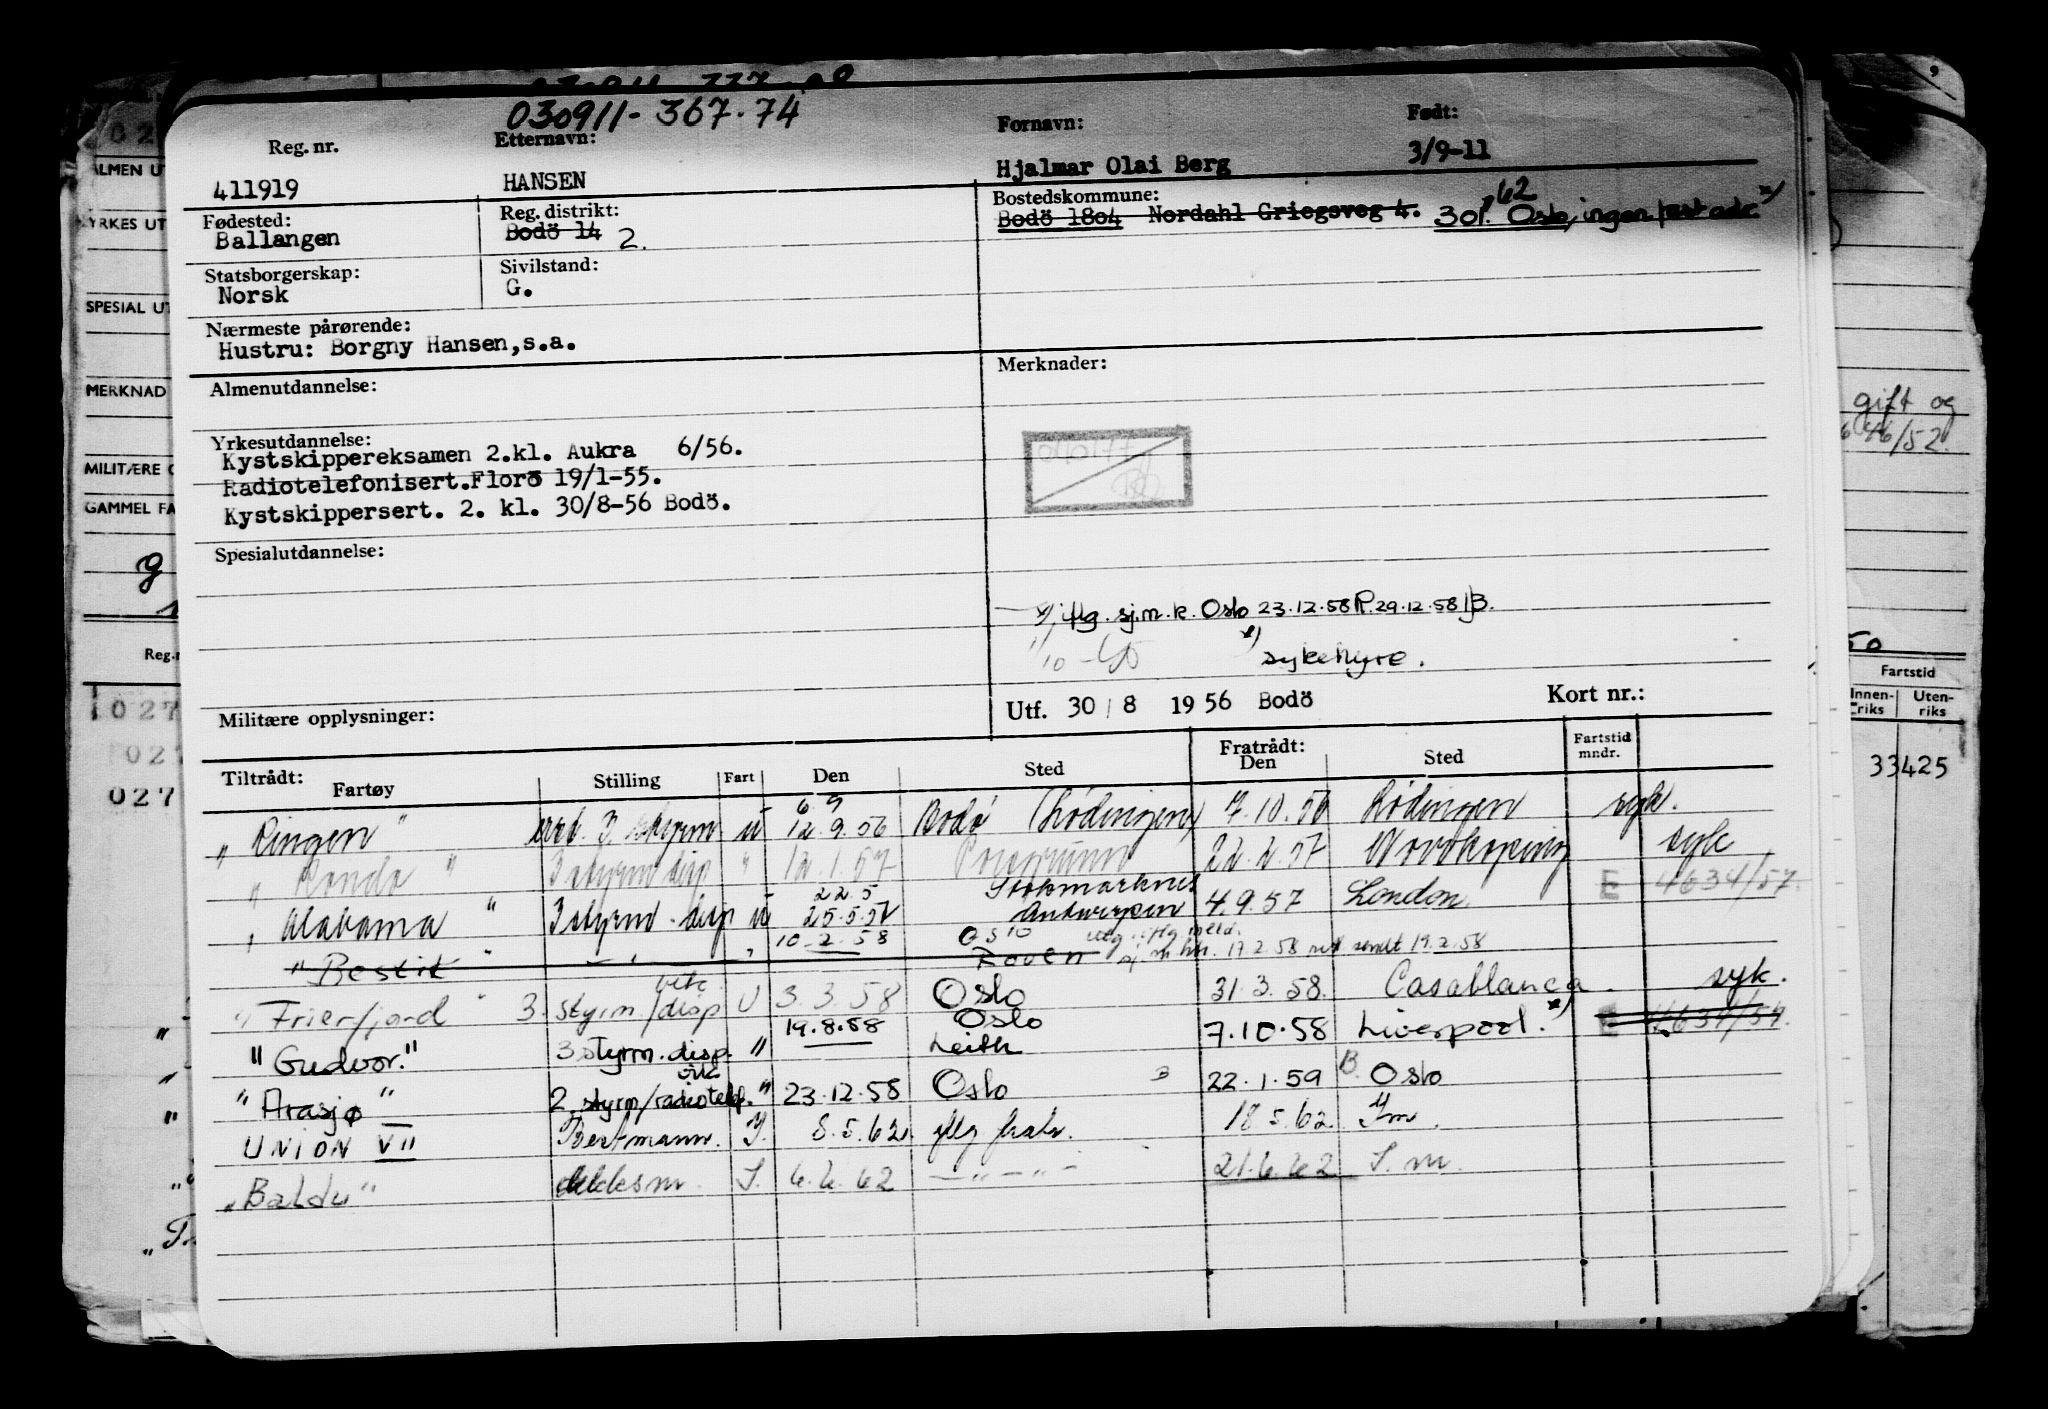 030911-367.74
Reg. nr. Etternavn: Fornavn: Født:
411919 HANSEN Hjalmar Olai Berg 3/9-11
Fødested: Reg. distrikt: Bostedskommune: 62
Ballangen Bodö 14 2. Bodö 1804 Nordahl Griegsveg 4. 301. Oslo, ingen fast adr. x)
Statsborgerskap: Sivilstand:
Norsk G.
Nærmeste pårørende:
Hustru: Borgny Hansen, s.a.
Almenutdannelse: Merknader:
Yrkesutdannelse:
Kystskippereksamen 2.kl. Aukra 6/56.
Radiotelefonisert. Florö 19/1-55.
Kystskippersert. 2. kl. 30/8-56 Bodö.
Spesialutdannelse:
x) iflg. sj.m.k. Oslo 23.12.58 P. 29.12.58
x) sykehyre.
Militære opplysninger: Utf. 30/8 1956 Bodö Kort nr.:
Tiltrådt: Fratrådt:
Fartøy Stilling Fart Den Sted Den Sted Fartstid mndr.
6.9
"Ringen" 3. styrm u 12.9.56 Bodø (Lødingen) 7.10.56 Lødingen syk.
"Rondo" 3 styrm disp " 12.1.57 Porsgrunn 22.2.57 Norrkøping syk
22.5 Stokmarknes
"Alabama" 3 styrm. disp u 25.5.57 Antwerpen 4.9.57 London E 4634/57.
10.2.58 Oslo
"Bestik" " Rouen 17.2.58 sendt 19.2.58
"Frierfjord" 3. styrm/disp U 3.3.58 Oslo 31.3.58. Casablanca. syk.
19.8.58 Oslo
"Gudvor." 3 styrm. disp. " Leith 7.10.58 Liverpool. x)
"Arasjø" 2. styrm/radiotelef. " 23.12.58 Oslo 22.1.59 B. Oslo
UNION VII Bestmann. I. 8.5.62 iflg hatr. 18.5.62 Im.
"Baldu" S. 6.6.62 — " — " — 21.6.62 S.m.
ALMEN UT
YRKES UT
SPESIAL UT
MERKNAD
MILITÆRE O
GAMMEL FA
Reg.
027
027
027
gift og
6 46/52.
50
Fartstid
Innen-riks Uten-riks
33425